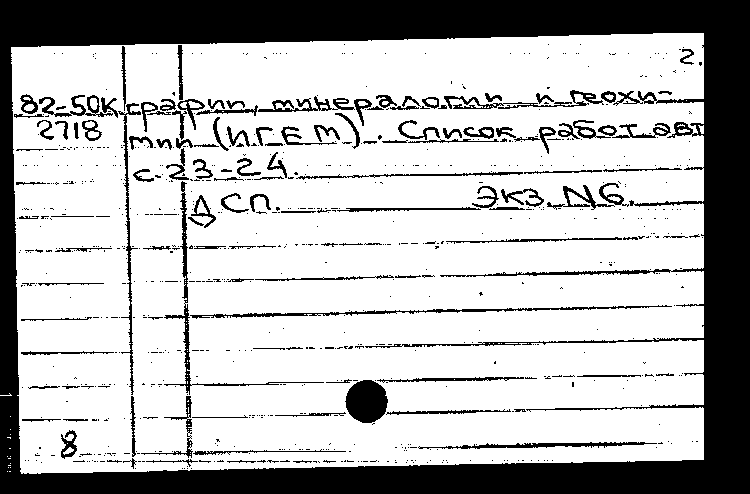 2.
82-50К графии, минералогии и геохи-
2718 мии (ИГЕМ). Список работ авт
с. 23-24.
СП. Экз. N6.
8